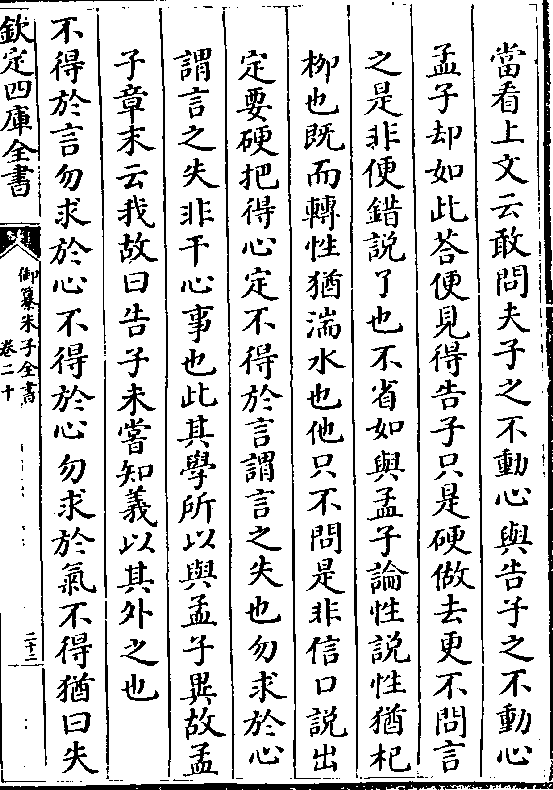 當看上文云敢問夫子之不動心與告子之不動心
孟子却如此荅便見得告子只是硬做去更不問言
之是非便錯説了也不省如與孟子論性説性猶杞
柳也既而轉性猶湍水也他只不問是非信口説出
定要硬把得心定不得於言謂言之失也勿求於心
謂言之失非干心事也此其學所以與孟子異故孟
子章末云我故曰告子未嘗知義以其外之也
不得於言勿求於心不得於心勿求於氣不得猶曰失
欽定四庫全書
御纂朱子全書
卷二十
二十二